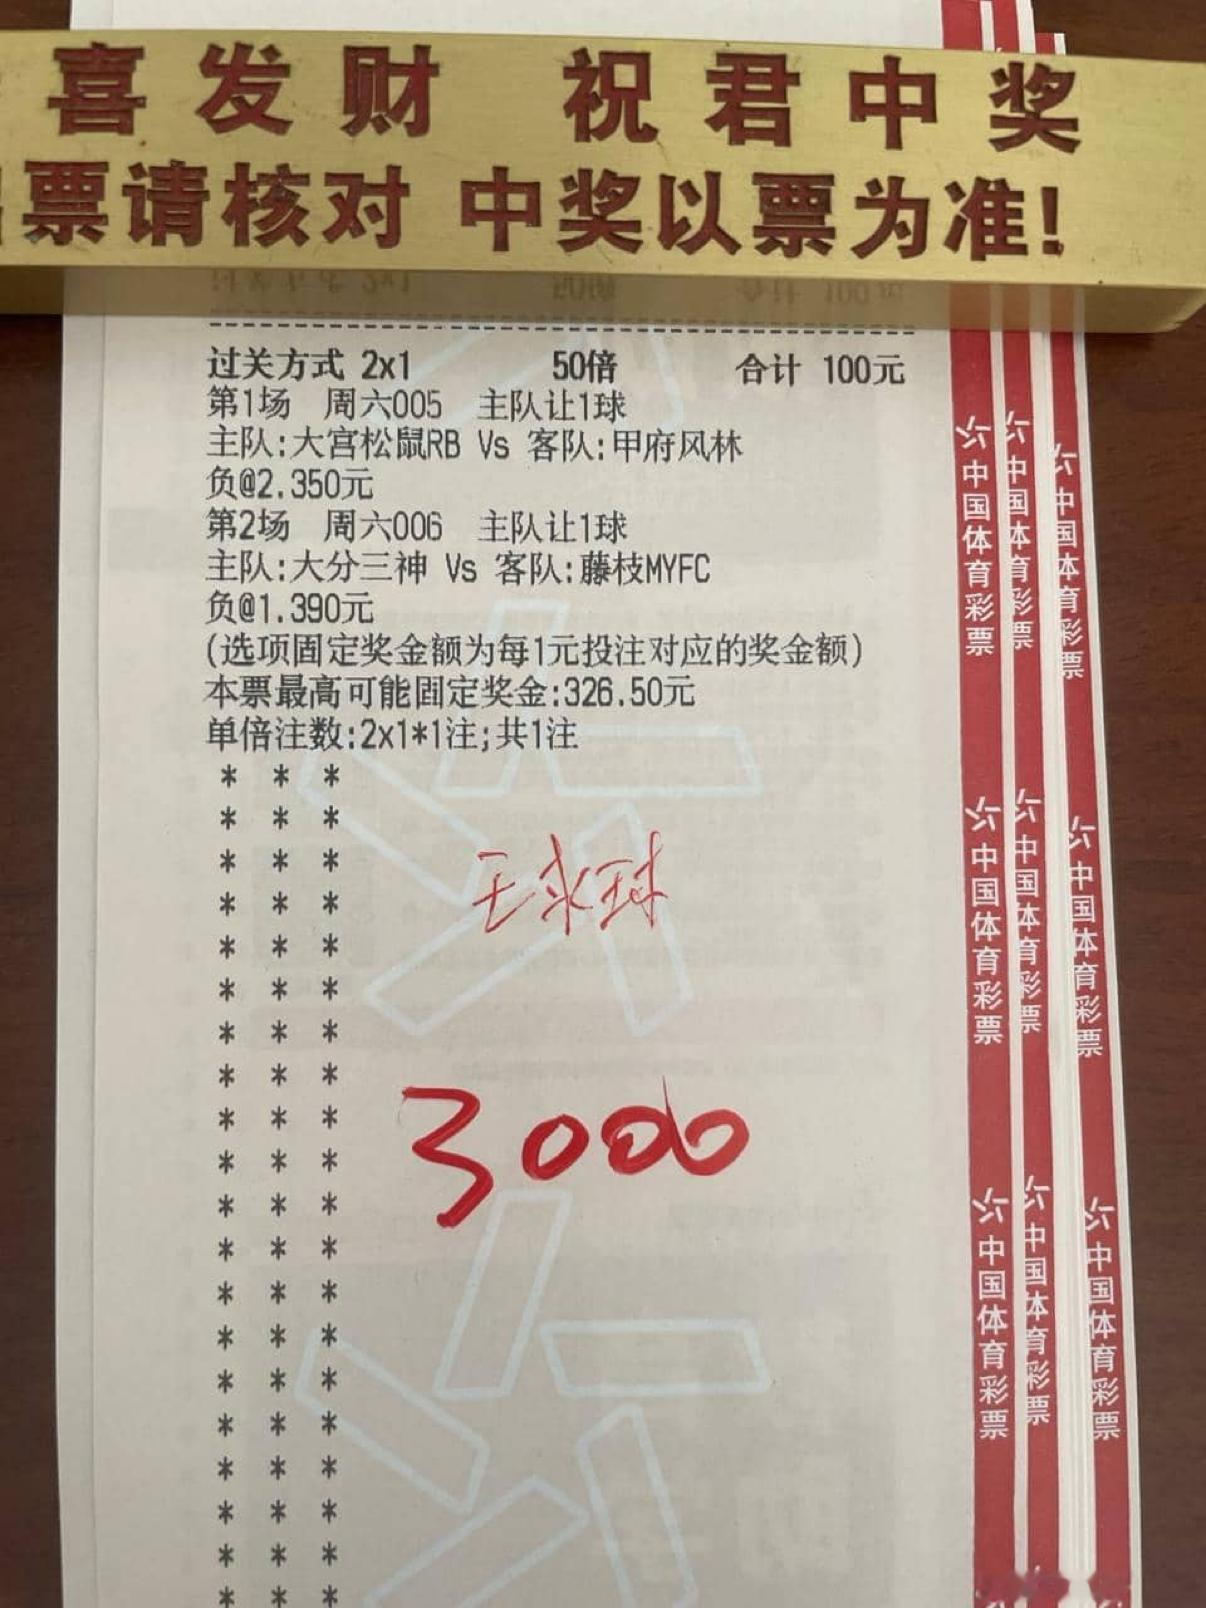 喜发财 祝君中奖
票请核对 中奖以票为准!
过关方式 2x1 50倍 合计 100元
第1场 周六005 主队让1球
主队:大宫松鼠RB Vs 客队:甲府风林
负@2.350元
第2场 周六006 主队让1球
主队:大分三神 Vs 客队:藤枝MYFC
负@1.390元
(选项固定奖金额为每1元投注对应的奖金额)
本票最高可能固定奖金:326.50元
单倍注数:2x1*1注;共1注
* * *
* * *
* * *
* * *
* * *
* * *
* * *
* * *
* * *
* * *
* * *
* * *
* * *
* * *
* * *
* * *
* * *
* * *
* * *
* * *
王球球
3000
中国体育彩票
中国体育彩票
中国体育彩票
中国体育彩票
中国体育彩票
中国体育彩票
中国体育彩票
中国体育彩票
中国体育彩票